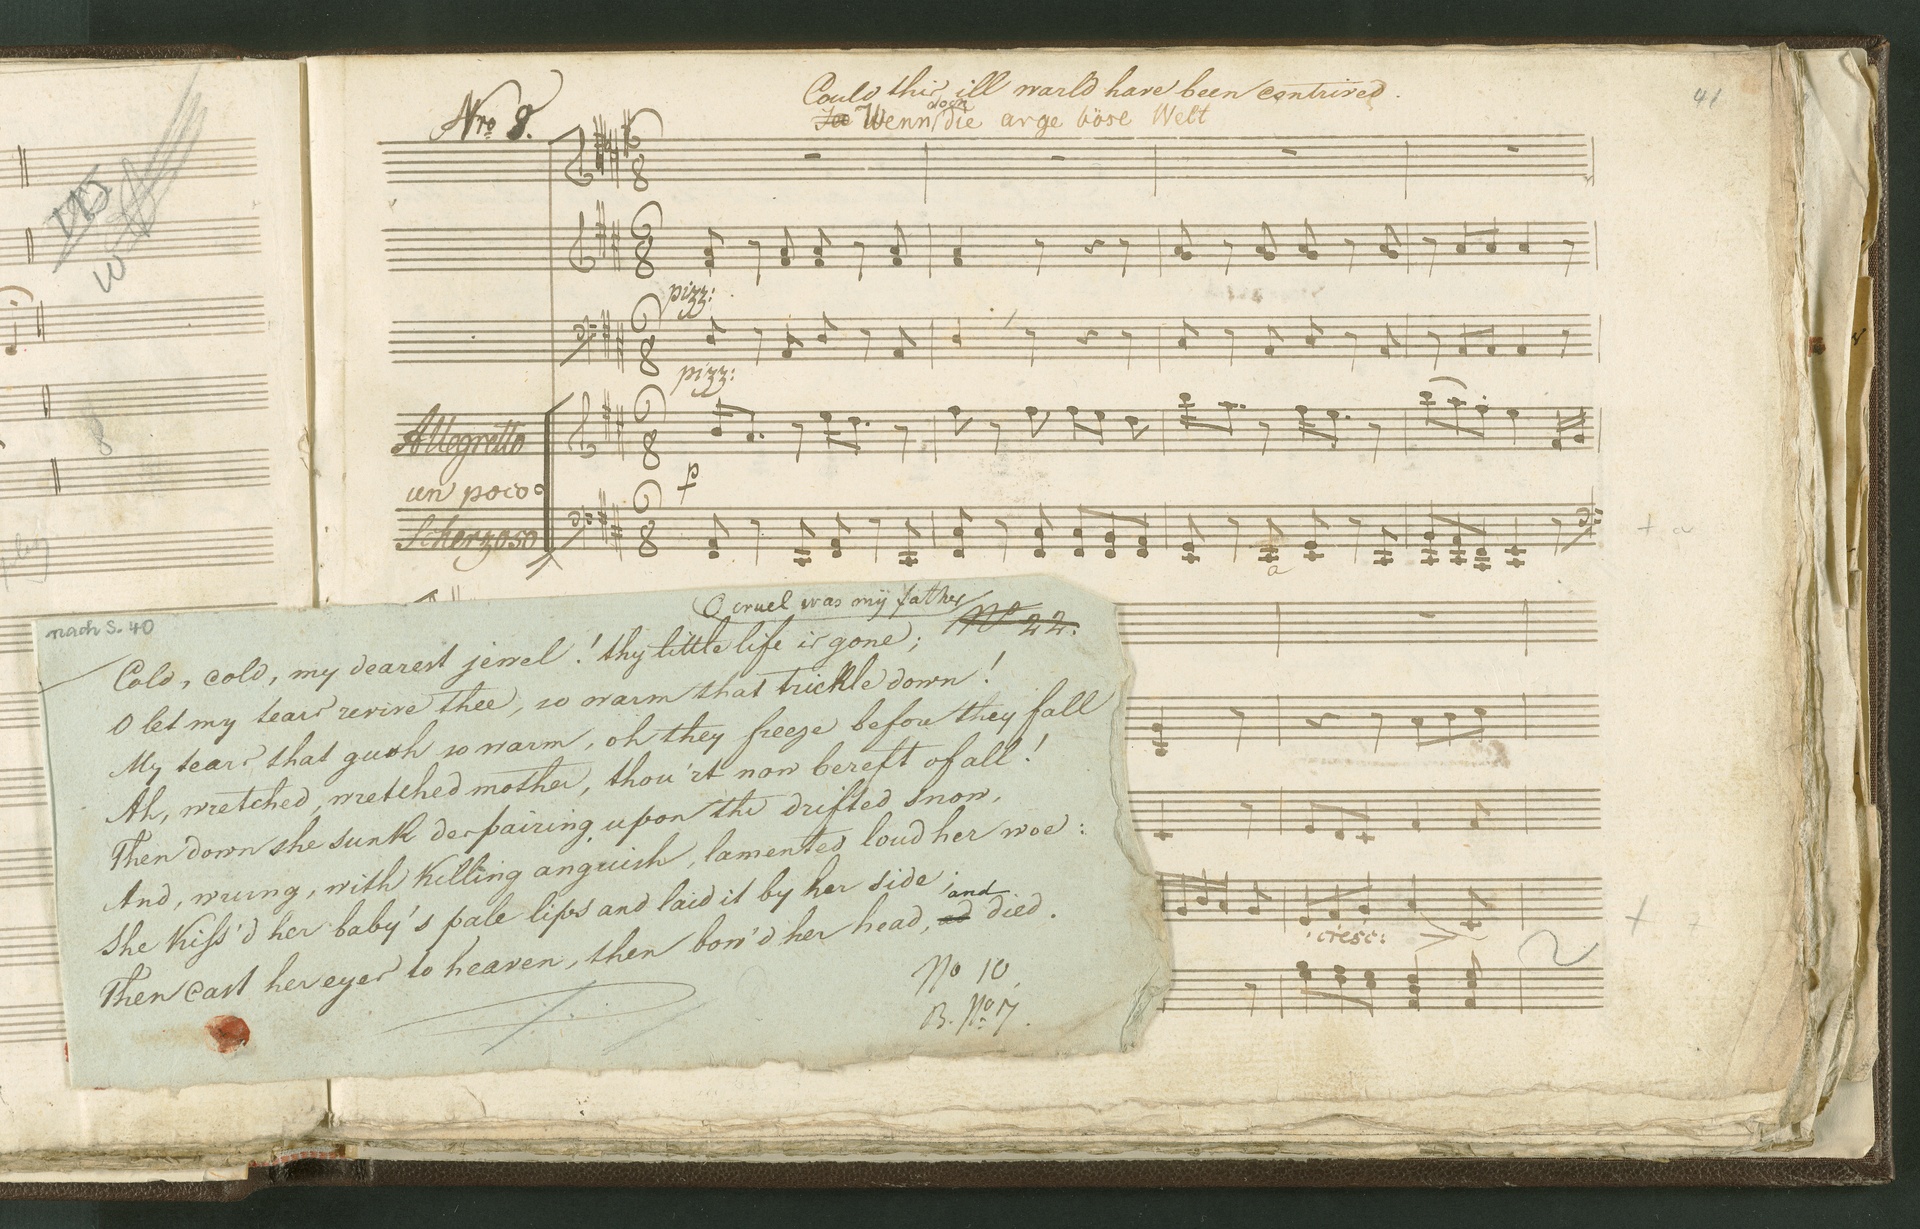 Nro 8.
Could this ill warld have been contrived.
Wenn doch die arge böse Welt
41
pizz:
pizz:
Allegretto
un poco
Scherzoso
p
a
+ a
nach S. 40
O cruel was my father
No 22.
Cold, cold, my dearest jewel! thy little life is gone;
O let my tears revive thee, so warm that trickle down!
My tears that gush so warm, oh they freeze before they fall
Ah, wretched, wretched mother, thou'rt now bereft of all!
Then down she sunk despairing upon the drifted snow,
And, wrung, with killing anguish, lamented loud her woe:
She kiss'd her baby's pale lips and laid it by her side;
Then cast her eyes to heaven, then bow'd her head, and died.
No 10.
B. No 7.
cresc: